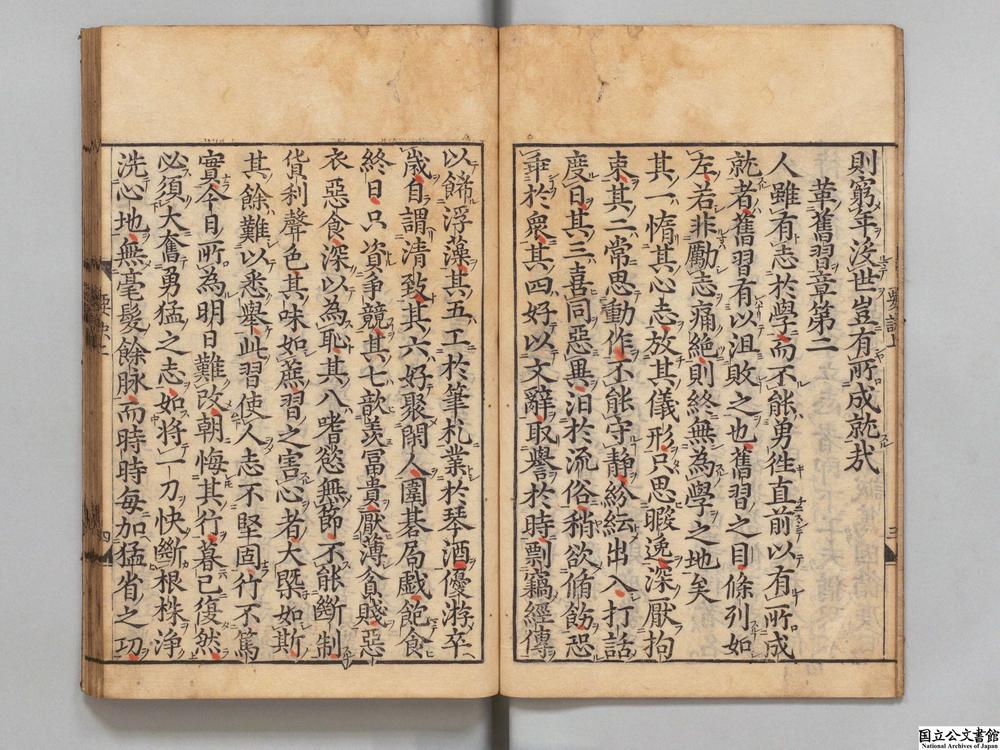 則窮年没世豈有所成就㢤
革舊習章第二
人雖有志於學而不能勇徃直前以有所成
就者舊習有以沮敗之也舊習之目條列如
左若非勵志痛絶則終無為學之地矣
其一惰其心志放其儀形只思暇逸深厭拘
束其二常思動作不能守静紛紜出入打話
度日其三喜同惡異汨於流俗稍欲脩飭恐
乖於衆其四好以文辭取譽於時剽竊經傳
以餙浮藻其五工於筆札業於琴酒優游卒
歳自謂清致其六好聚閑人圍碁局戲飽食
終日只資爭競其七歆羡冨貴厭薄貧賤惡
衣惡食深以為恥其八嗜慾無節不能斷制
貨利聲色其味如蔗習之害心者大槩如斯
其餘難以悉舉此習使人志不堅固行不篤
實今日所為明日難改朝悔其行暮已復然
必須大奮勇猛之志如將一刀快斷根株淨
洗心地無毫髮餘脉而時時毎加猛省之功
國立公文書館
National Archives of Japan